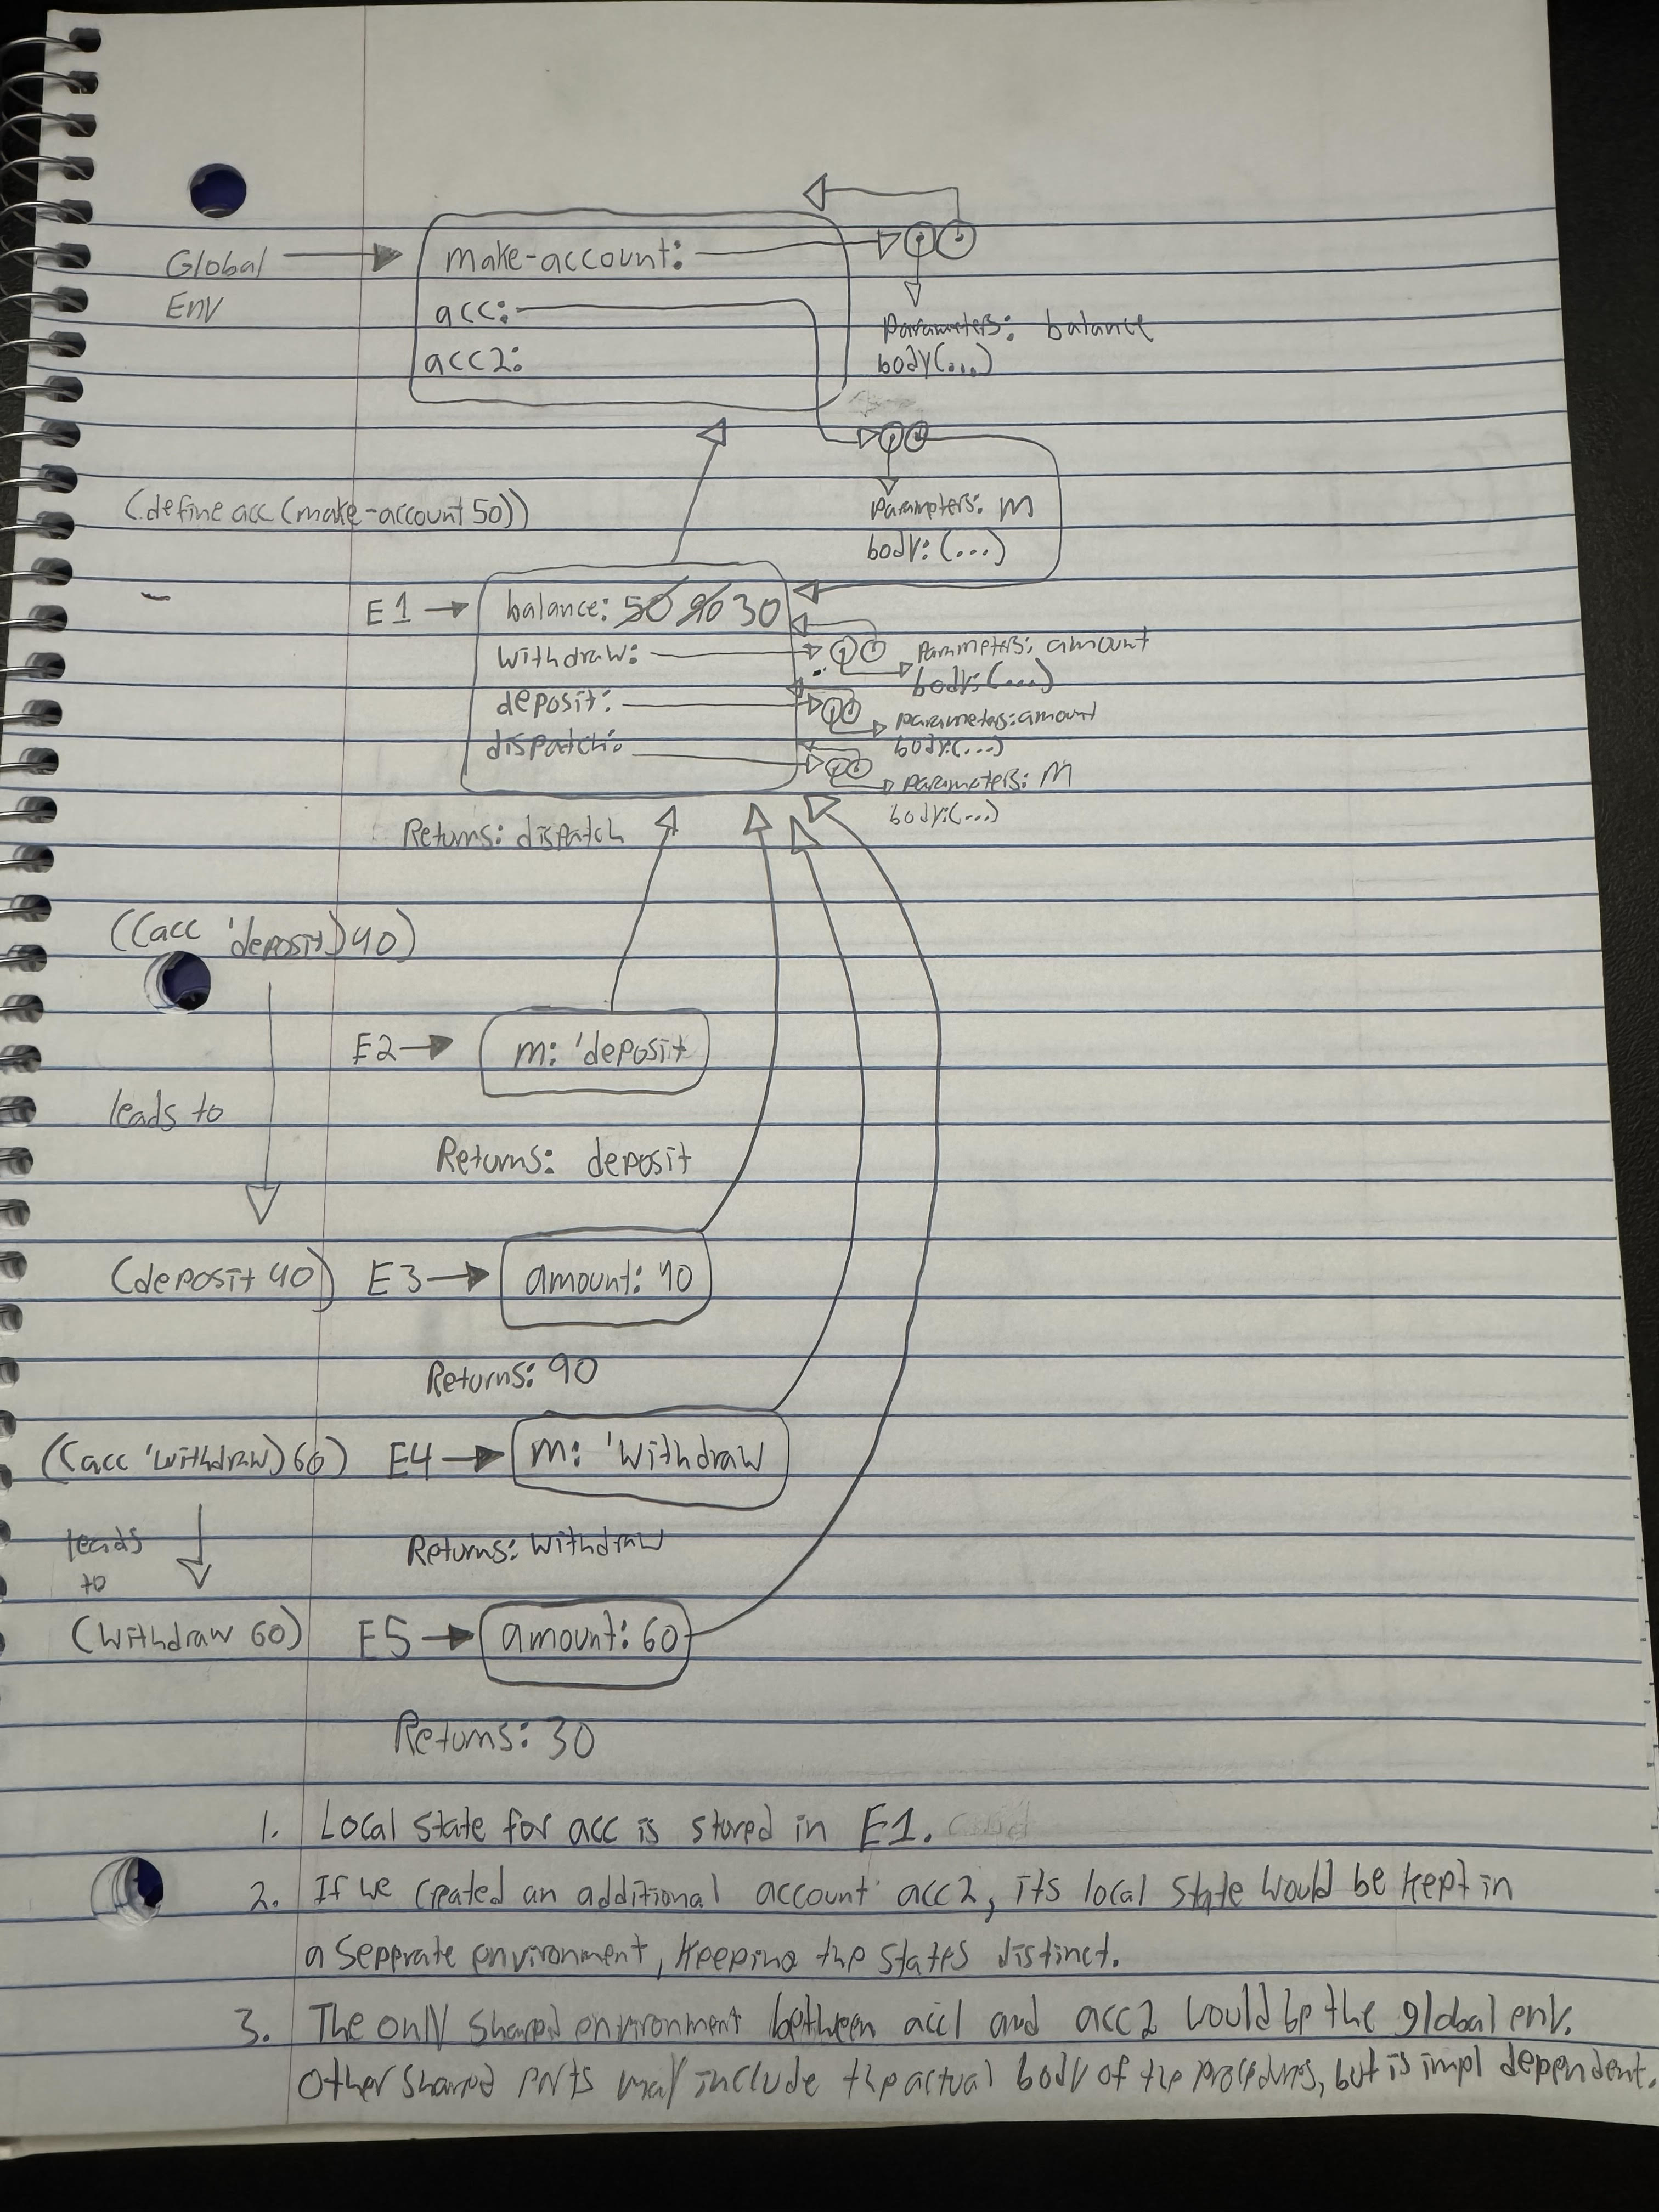 Global
Env
make-account:
acc:
acc2:
parameters: balance
body(...)
(define acc (make-account 50))
parameters: m
body: (...)
E1
balance: 50 90 30
withdraw:
parameters: amount
body: (...)
deposit:
parameters: amount
body: (...)
dispatch:
parameters: m
body: (...)
Returns: dispatch
((acc 'deposit) 40)
E2
m: 'deposit
leads to
Returns: deposit
(deposit 40)
E3
amount: 40
Returns: 90
((acc 'withdraw) 60)
E4
m: 'withdraw
leads
to
Returns: withdraw
(withdraw 60)
E5
amount: 60
Returns: 30
1. Local state for acc is stored in E1.
2. If we created an additional account acc2, its local state would be kept in
a seperate environment, keeping the states distinct.
3. The only shared environment between acc1 and acc2 would be the global env.
Other shared parts may include the actual body of the procedures, but is impl dependent.